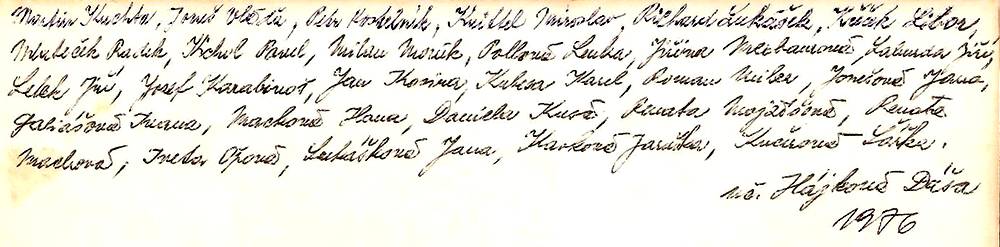 Martin Kuchta, Tomeš Vlasta, Petr Kostelník, Knittl Miroslav, Richard Lukášek, Křák Libor,
Mrubčák Radek, Michul Pavel, Milan Mařík, Pollová Lenka, Jiřina Jiří,
Lelek Jiří, Josef Karabinoš, Jan Kosina, Kuksa Karel, Roman Milka, Jonešová Jana,
Galiášová Ivana, Macková Hana, Daniela Kusá, Renata Mojžíšová, Renata
Machová, Iveta Oponě, Lukášková Jana, Karkové Jaruška, Kučerová Šárka.
uč. Hájková Dáša
1976